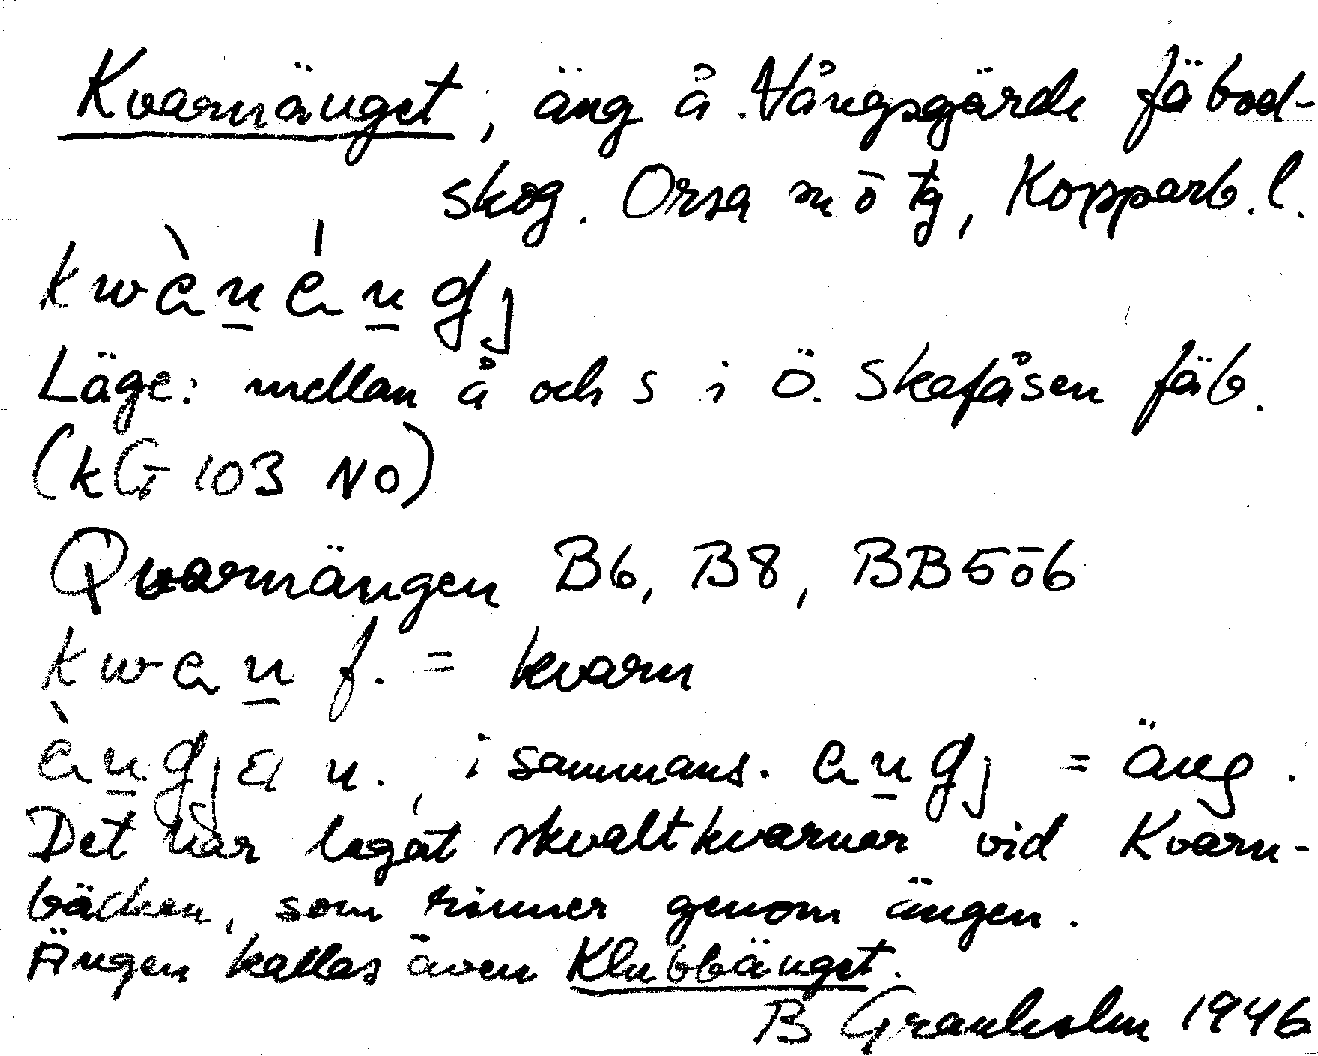 Kvarnänget, äng å Vångsgärde fäbod-
skog. Orsa sn ō tg, Kopparb. l.
Läge: mellan å och s i Ö. Skafåsen fäb.
(kG 103 NO)
Quarnängen B6, B8, BB5ō6
kwæn f. = kvarn
n., i sammans. = äng.
Det har legat skvaltkvarnar vid Kvarn-
bäcken, som rinner genom ängen.
Ängen kallas även Klubbänget.
B Granholm 1946